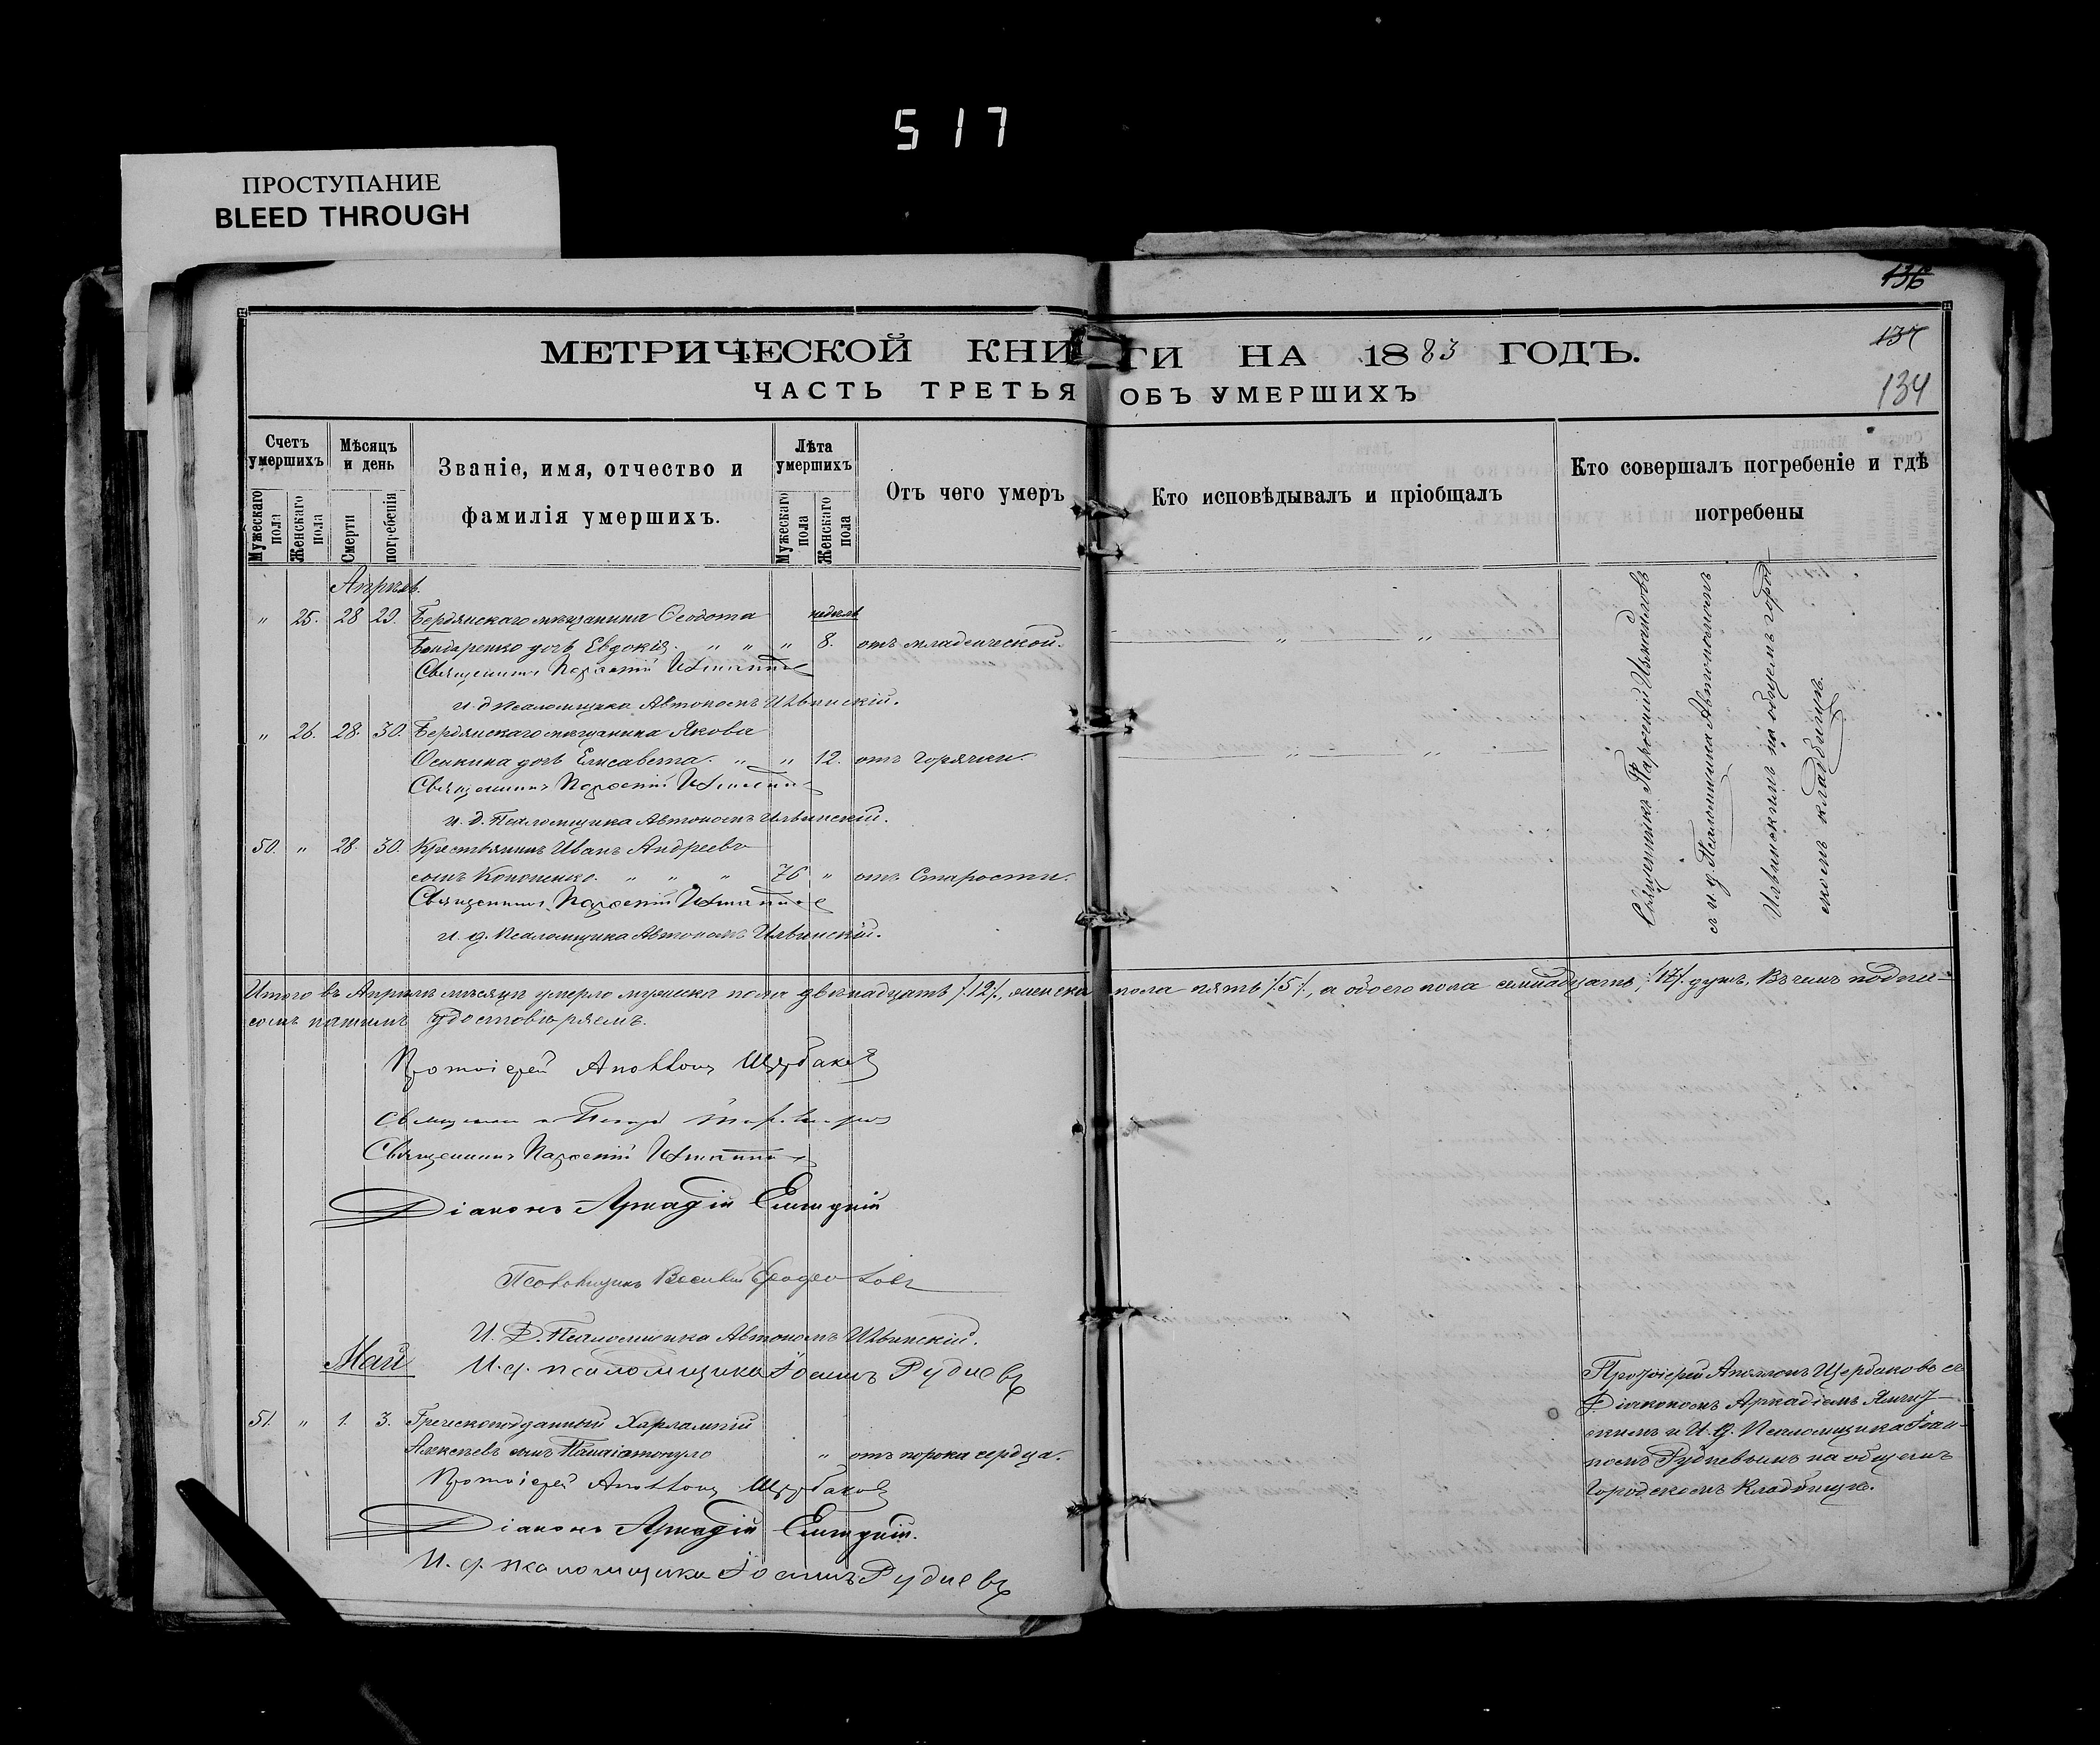 517
ПРОСТУПАНИЕ
BLEED THROUGH
136
МЕТРИЧЕСКОЙ КНИГИ НА 1883 ГОДЪ.
137
ЧАСТЬ ТРЕТЬЯ ОБЪ УМЕРШИХЪ
134
Счетъ умершихъ
Мужескаго пола
Женскаго пола
Мѣсяцъ и день
Смерти
погребенія
Званіе, имя, отчество и
фамилія умершихъ.
Лѣта умершихъ
Мужескаго пола
Женскаго пола
Отъ чего умеръ
Кто исповѣдывалъ и пріобщалъ
Кто совершалъ погребеніе и гдѣ
погребены
Апрѣль.
" 25. 28 29. Бердянскаго мѣщанина Ѳеодота недѣль
Бондаренко дочь Евдокія. " " " 8. отъ младенческой. "
Священникъ Парѳеній
и. д. Псаломщика Автономъ Ильинскій.
" 26. 28. 30. Бердянскаго мѣщанина Якова
Осикина дочь Елисавета. " " 12. отъ горячки. "
Священникъ Парѳеній
и. д. Псаломщика Автономъ Ильинскій.
50. " 28. 30. Крестьянинъ Иванъ Андреевъ
сынъ Кононенко. " " " 76 " отъ Старости.
Священникъ Парѳеній
и. д. Псаломщика Автономъ Ильинскій.
Священникъ Парѳеній
съ и. д. Псаломщика Автономомъ
Ильинскимъ на общемъ город
скомъ кладбищѣ.
Итого въ Апрѣлѣ мѣсяцѣ умерло мужеска пола двѣнадцать /12/, женска пола пять /5/, а обоего пола семнадцать /17/ душъ. Въ чемъ подпи-
сомъ нашимъ удостовѣряемъ.
Протоіерей Аполлонъ Щербаковъ
Священникъ Петръ
Священникъ Парѳеній
Діаконъ Аркадій
Псаломщикъ Василій
И. Д. Псаломщика Автономъ Ильинскій.
И. д. псаломщика Іоаннъ Рудневъ
Май
51. " 1. 3. Греческоподданный Харлампій
Алексѣевъ сынъ Панаіотопуло " отъ порока сердца.
Протоіерей Аполлонъ Щербаковъ
Діаконъ Аркадій
И. д. псаломщика Іоаннъ Рудневъ
Протоіерей Аполлонъ Щербаковъ съ
Діакономъ Аркадіемъ
скимъ и И. д. Псаломщика Іоан-
номъ Рудневымъ на общемъ
Городскомъ Кладбищѣ.